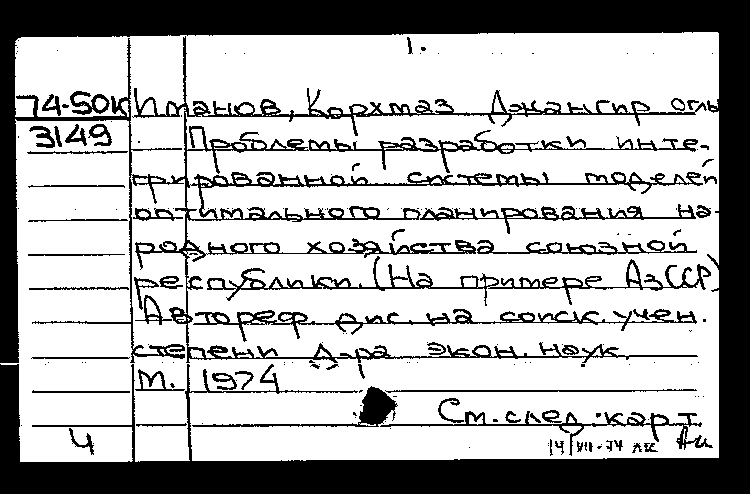 1.
74-50К Иманов, Корхмаз Джангир оглы
3149 Проблемы разработки инте-
грированной системы моделей
оптимального планирования на-
родного хозяйства союзной
республики. (На примере АзССР)
Автореф. дис. на соиск. учен.
степени д-ра экон. наук.
М. 1974
См. след. карт.
4 14/VII-74